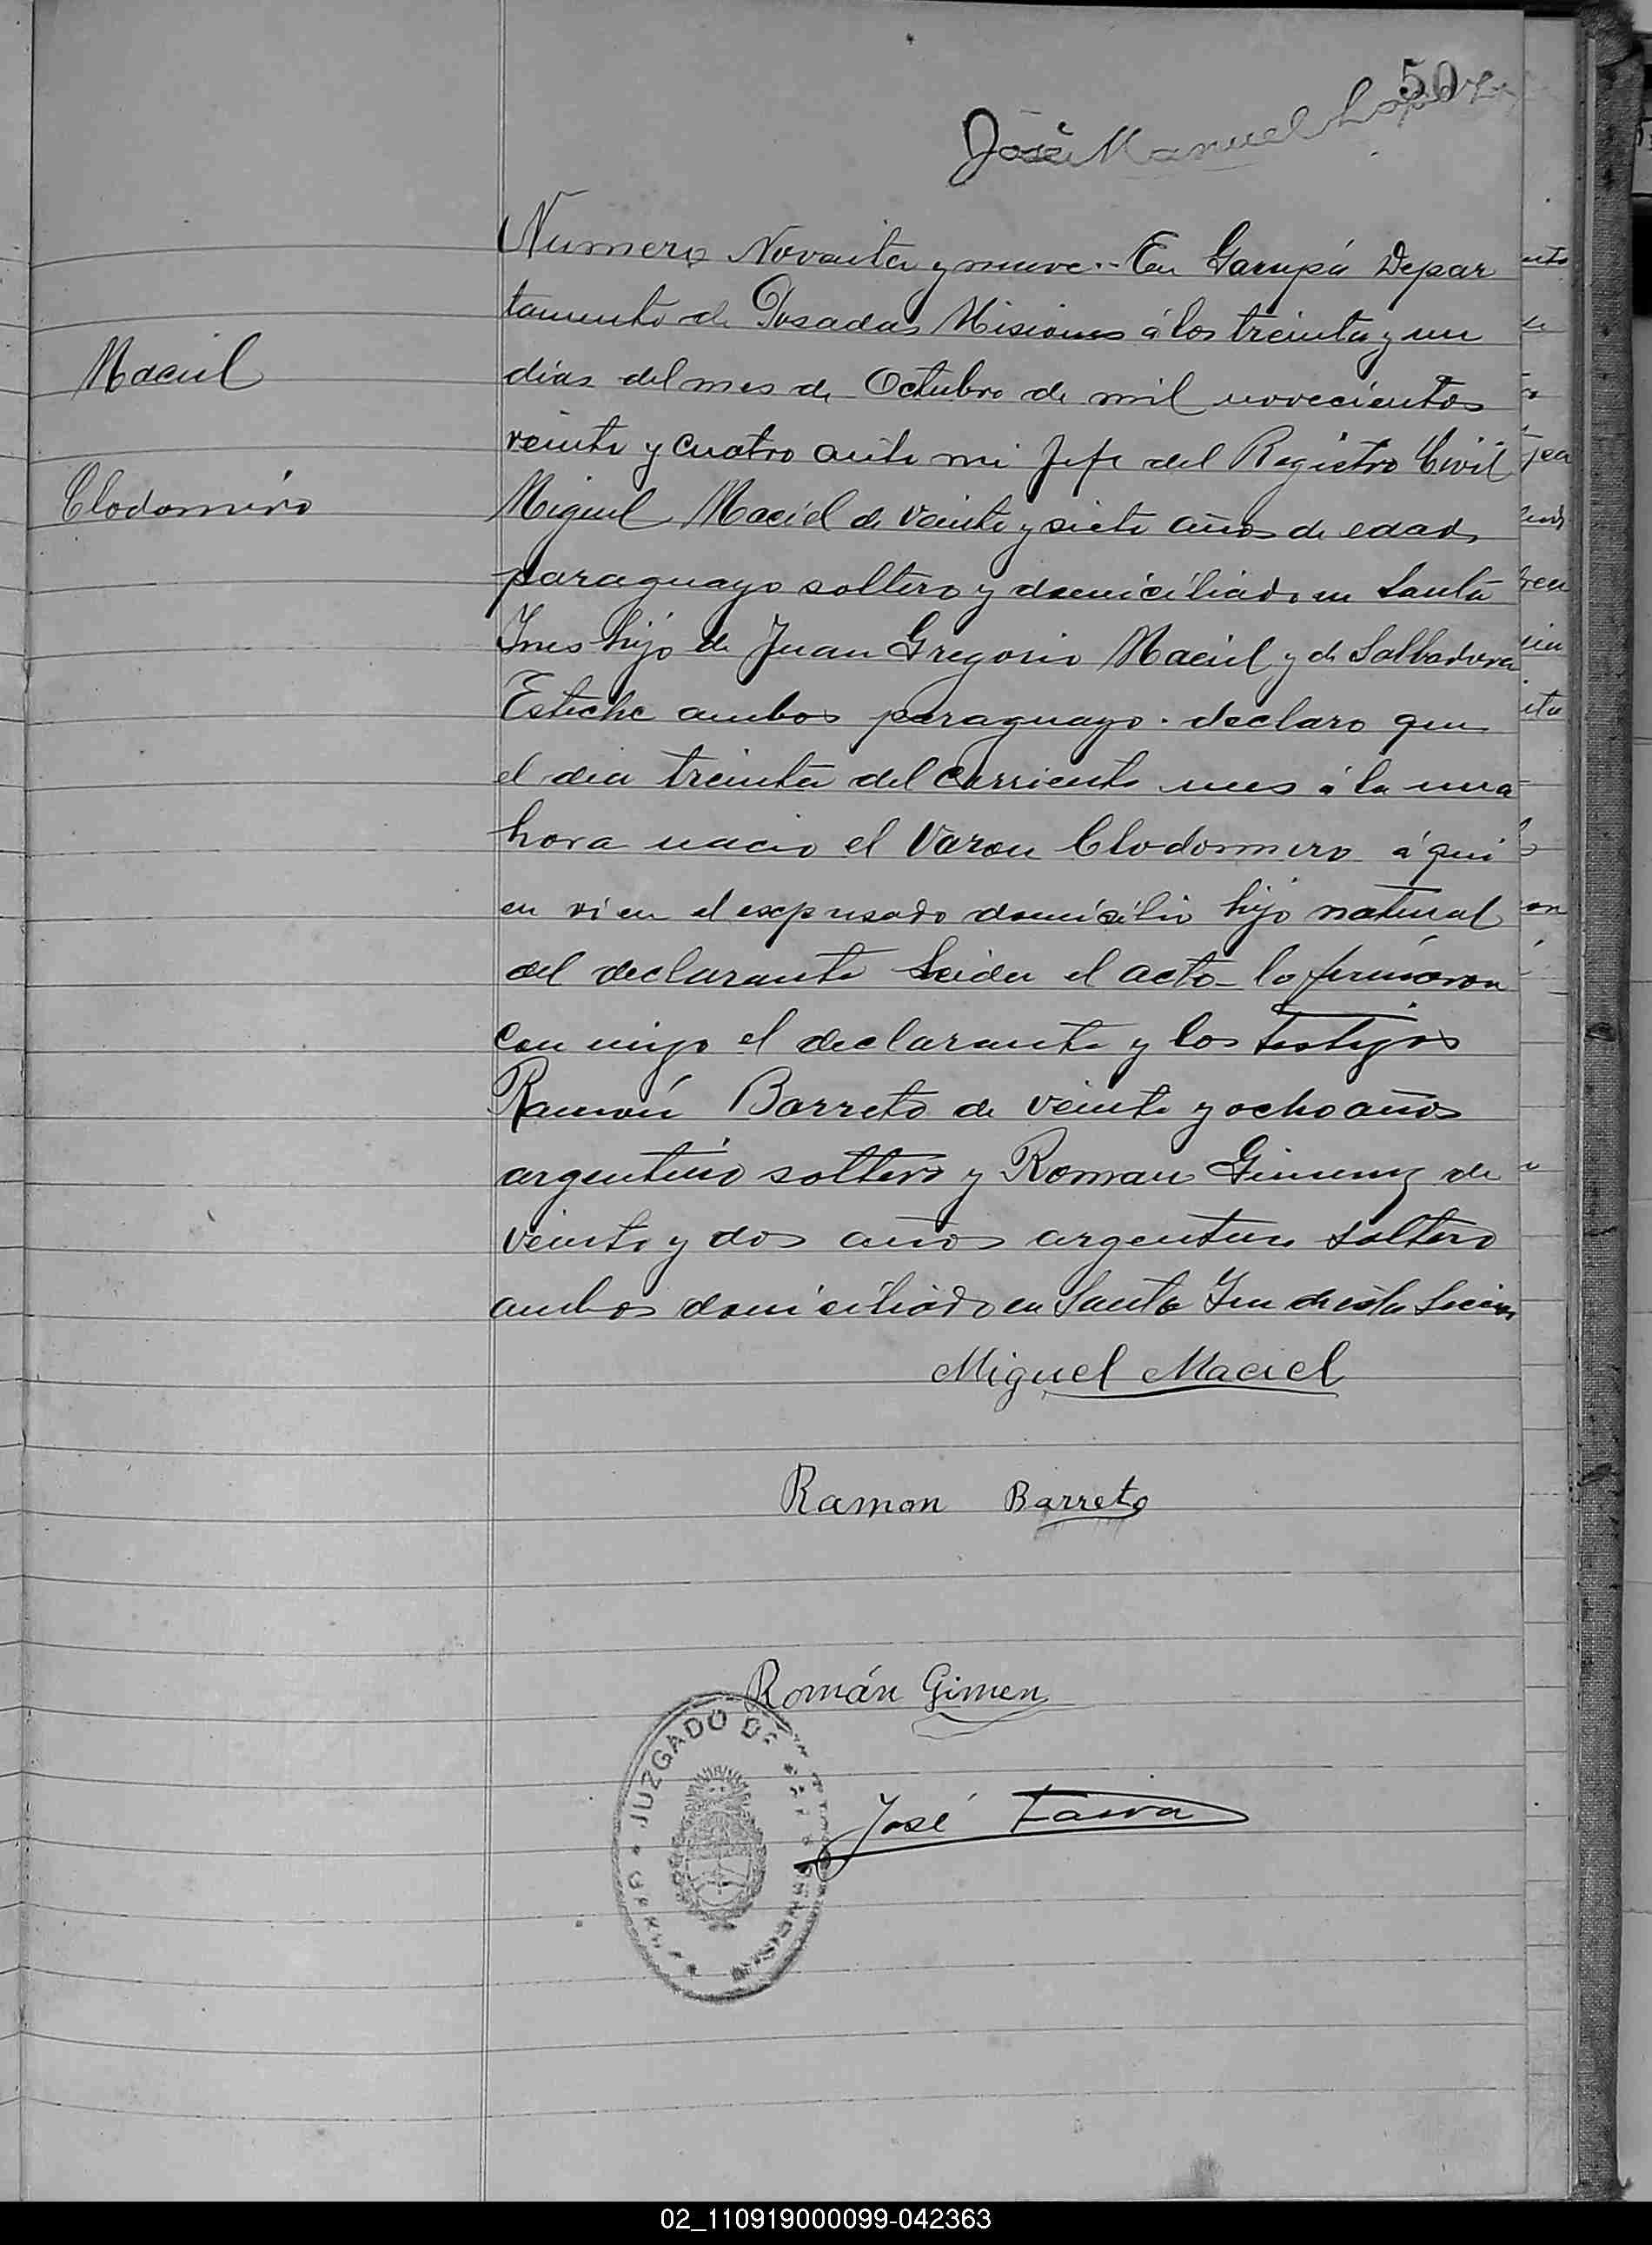 50
José Manuel Lopez
Numero Noventa y nueve.- En Garupá Depar
tamento de Posadas Misiones á los treinta y un
Maciel
dias del mes de Octubre de mil novecientos
veinte y cuatro ante mi Jefe del Registro Civil
Clodomiro
Miguel Maciel de veinte y siete años de edad
paraguayo soltero y domiciliado en Santa
Ines hijo de Juan Gregorio Maciel y de Salbadora
Esteche ambos paraguayo. declaro que
el dia treinta del corriente mes á la una
hora nacio el varon Clodomiro á qui
en vi en el expresado domicilio hijo natural
del declarante Leida el acta lo firmaron
con migo el declarante y los testigos
Ramón Barreto de veinte y ocho años
argentino soltero y Roman Gimenez de
veinte y dos años argentino soltero
ambos domiciliado en Santa Ines de esta
Miguel Maciel
Ramon Barreto
Román Gimen
JUZGADO DE
José Paiva
02_110919000099-042363